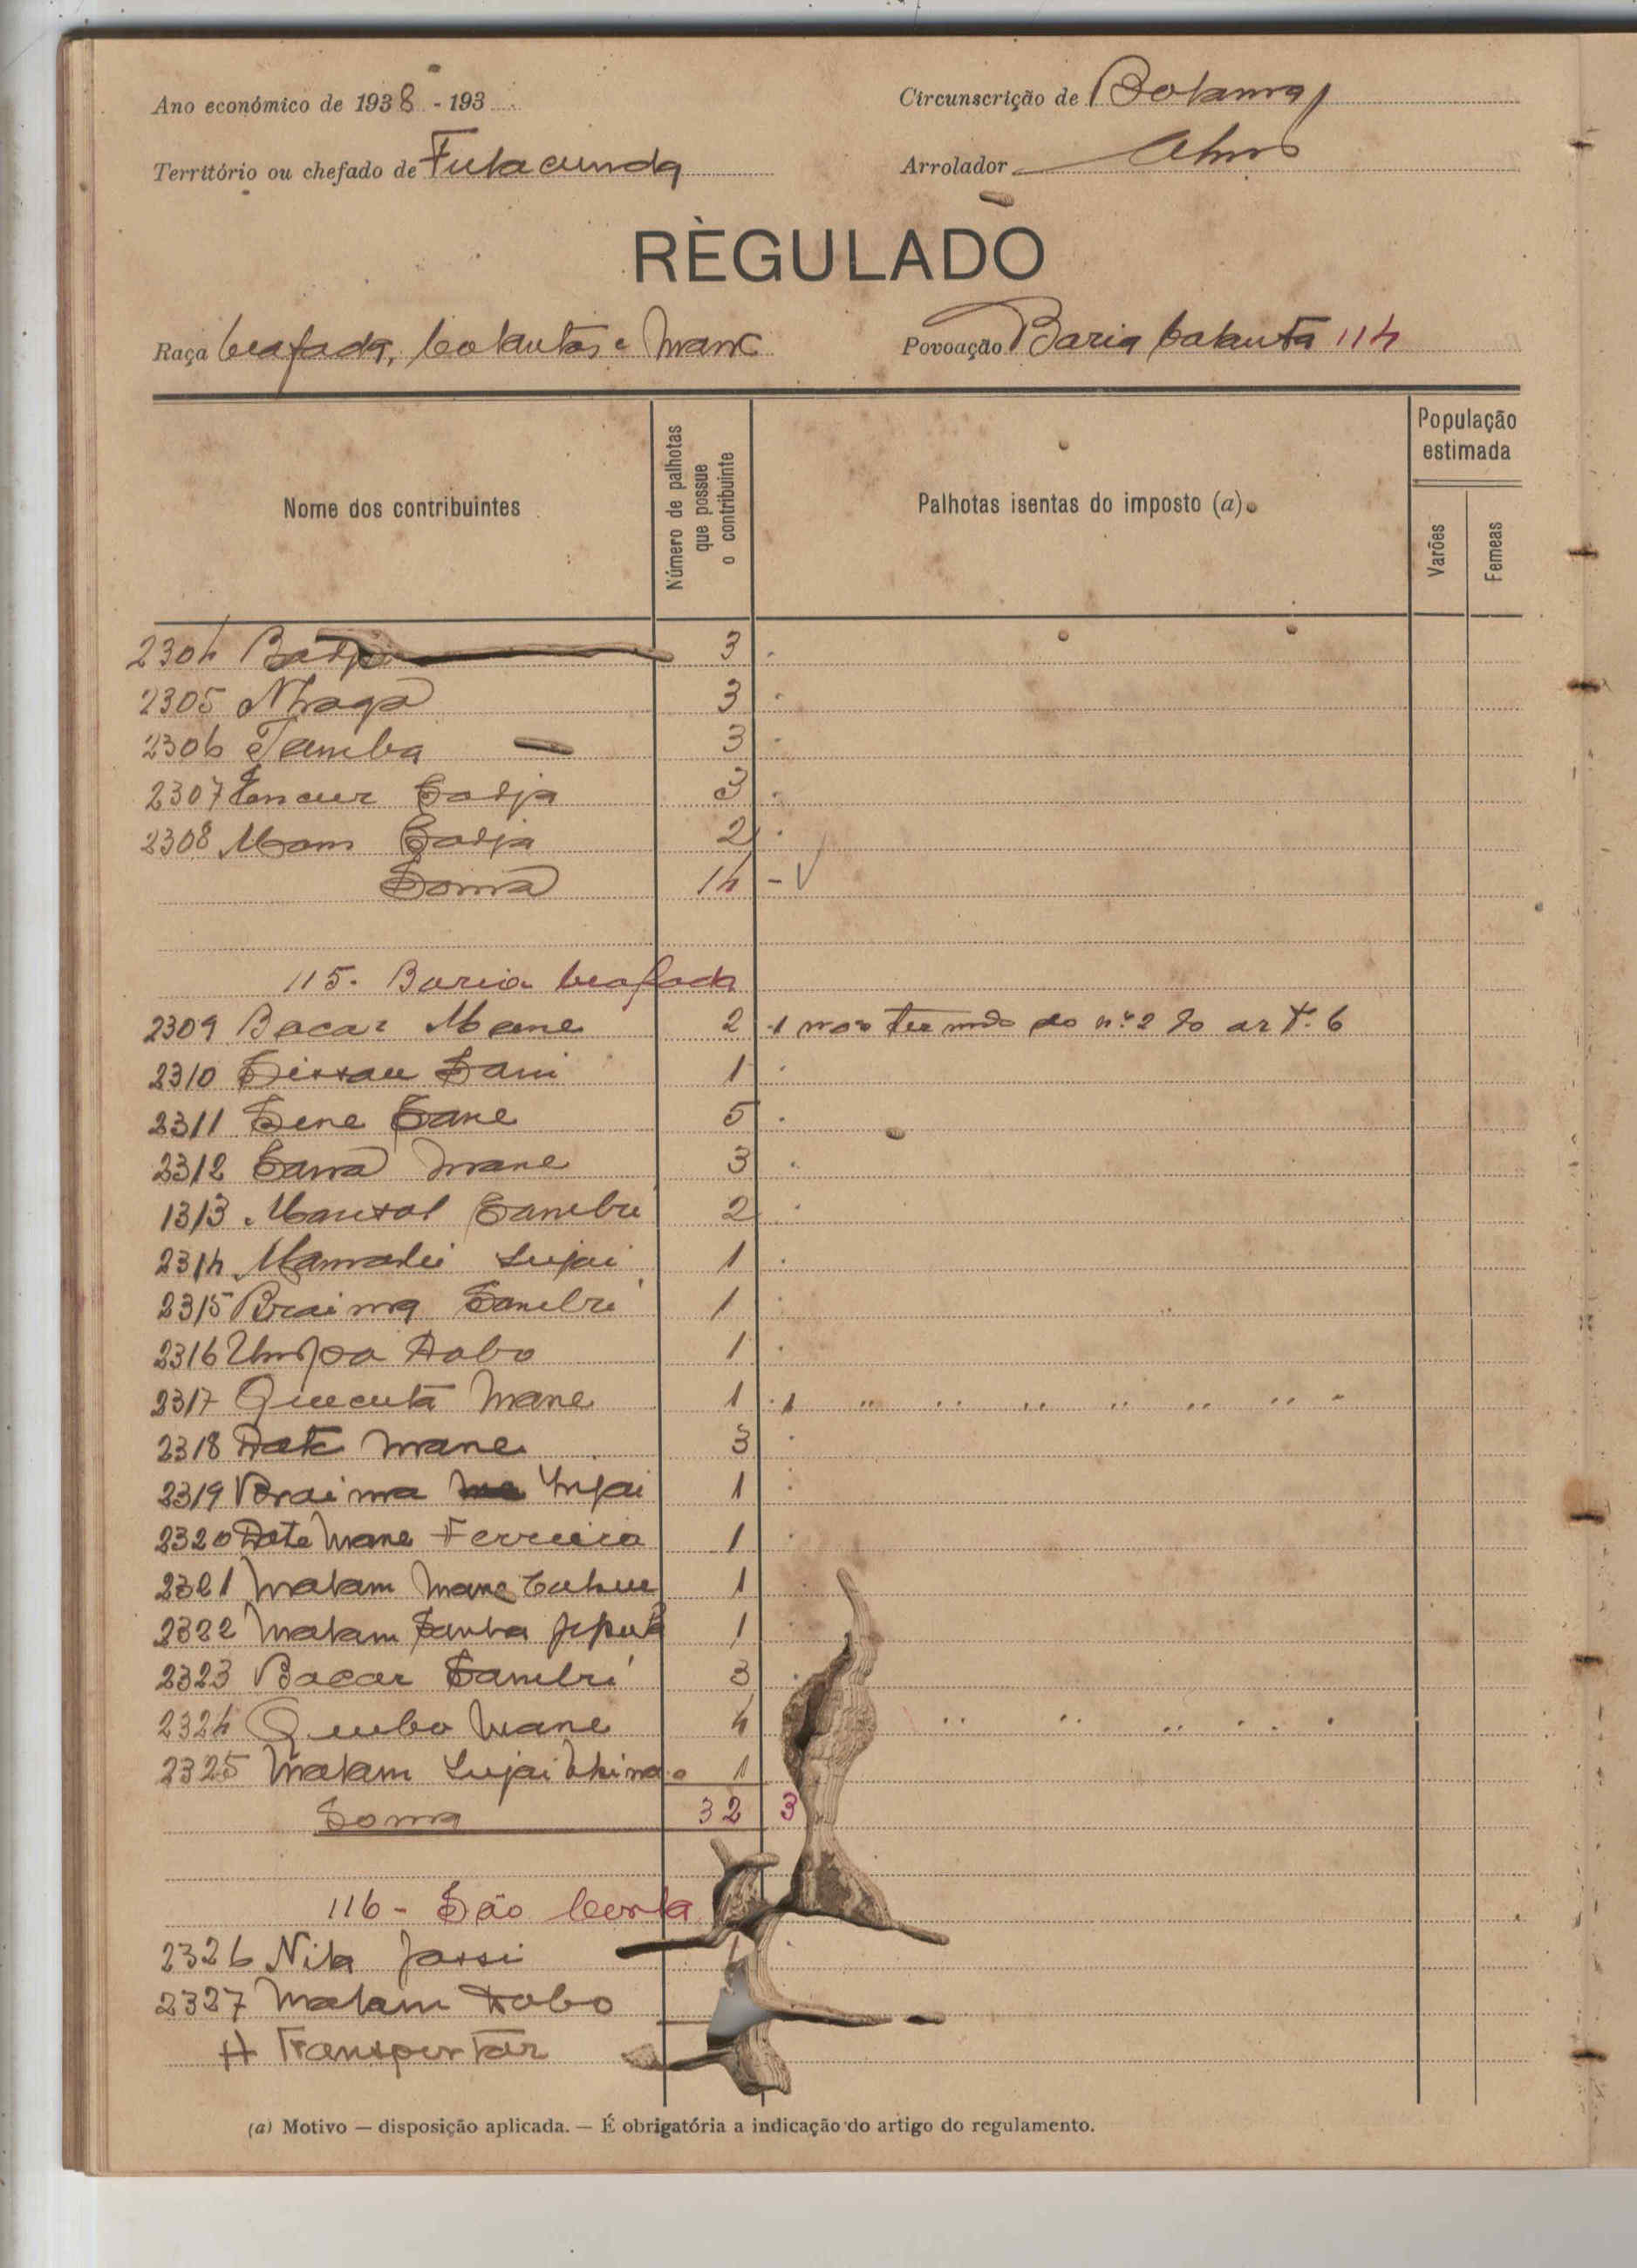 Ano económico de 1938 - 193
Circunscrição de Bolama
Território ou chefado de Fulacunda
Arrolador
REGULADO
Raça beafada, balantas e Manc
Povoação Baria balanta 114
Nome dos contribuintes
Número de palhotas que possue o contribuinte
Palhotas isentas do imposto (a)
População estimada
Varões
Femeas
2304 3
2305 Nhaga 3
2306 Tamba 3
2307 Sadja 3
2308 Sadja 2
Soma 14 -
115. Baria beafada
2309 Bacar Mane 2 1 nos termos do n.º 2 do art.º 6
2310 1
2311 Sene Sane 5
2312 Sana Mane 3
1313 Sambu 2
2314 Mamadu Injai 1
2315 Braima Sambu 1
2316 Dabo 1
2317 Quecuta Mane 1 1 " " " " " " "
2318 Mane 3
2319 Braima Injai 1
2320 Mane Ferreira 1
2321 Malam Mane 1
2322 Malam Samba 1
2323 Bacar Sambu 3
2324 Quebo Mane 4 " " " " " "
2325 Malam Injai 1
Soma 32 3
116 - São
2326 Nita Jassi
2327 Malam Dabo
A Transportar
(a) Motivo — disposição aplicada. — É obrigatória a indicação do artigo do regulamento.